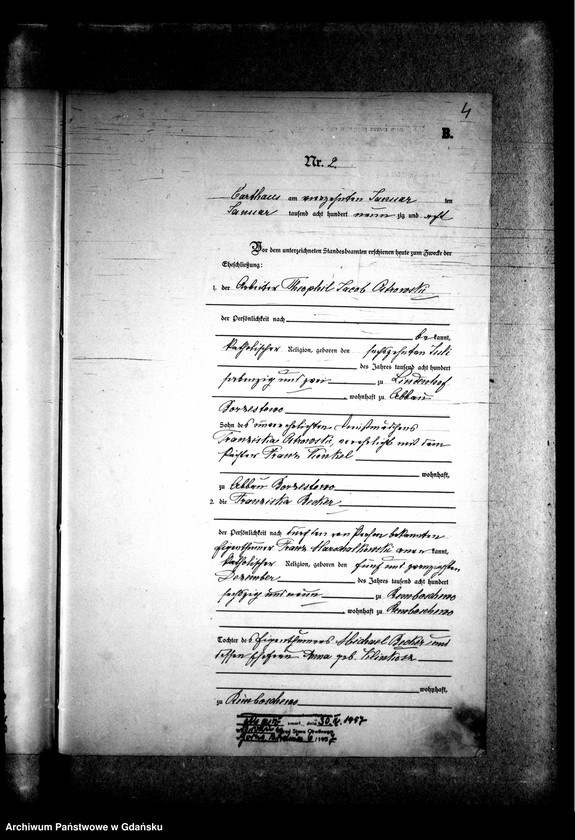 4
B.
Nr. 2.
Carthaus am vierzehnten Januar ten
Januar tausend acht hundert neun zig und acht
Vor dem unterzeichneten Standesbeamten erschienen heute zum Zwecke der
Eheschließung:
1. der Arbeiter Theophil Jacob Ostrowski
der Persönlichkeit nach
be kannt,
katholischer Religion, geboren den sechszehnten Juli
des Jahres tausend acht hundert
siebenzig und zwei zu Lindenhof
, wohnhaft zu Abbau
Borzestowo
Sohn des unverehelichten Dienstmädchens
Franziska Ostrowski, verehelicht mit dem
Franz
wohnhaft,
zu Abbau Borzestowo
2. die Franziska Becker
der Persönlichkeit nach durch den von Person bekannten
Eigenthümer Franz kannt,
katholischer Religion, geboren den fünf und zwanzigsten
Dezember des Jahres tausend acht hundert
sechszig und neun zu Remboschewo
, wohnhaft zu Remboschewo
Tochter des Eigenthümers Michael Becker und
dessen Ehefrau Anna geb.
wohnhaft,
zu Remboschewo
30. 1957
Archiwum Państwowe w Gdańsku